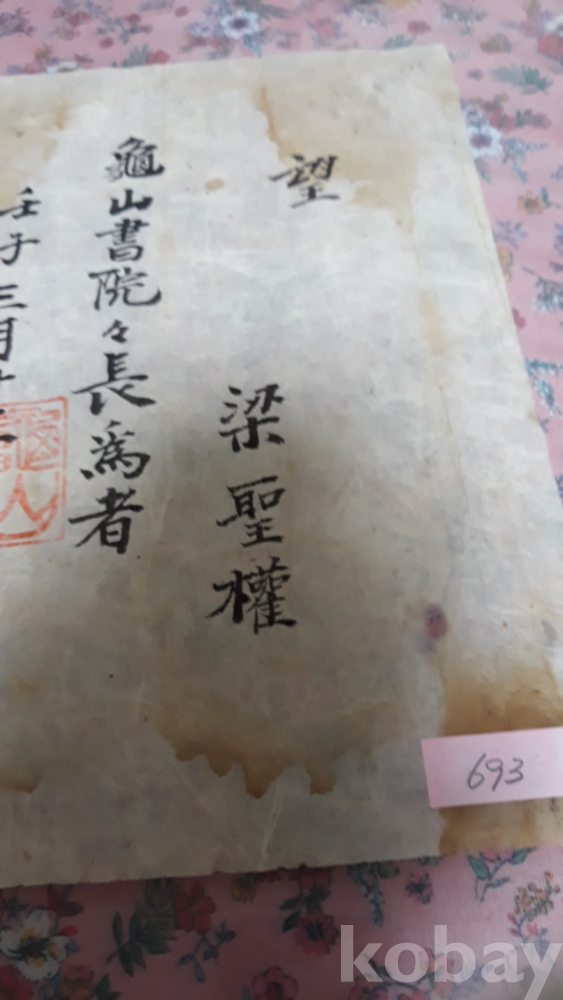 望
梁聖權
龜山書院々長爲者
壬子三月十
693
kobay